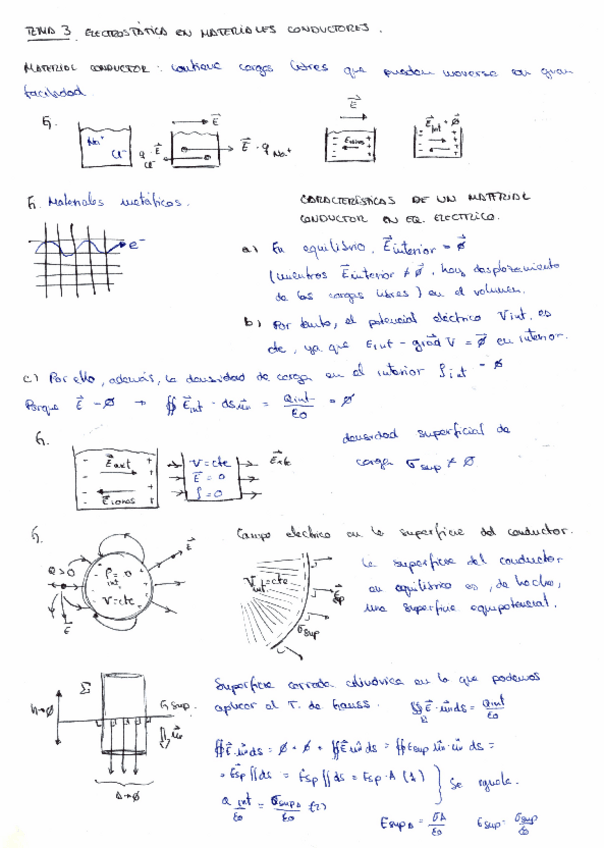 TEMA 3. ELECTROSTÁTICA EN MATERIALES CONDUCTORES.
MATERIAL CONDUCTOR: contiene cargas libres que pueden moverse con gran
facilidad.
Ej.
Na⁺
Cl⁻
E
E · q Na⁺
E
E int = ø
Ej. Materiales metálicos.
e⁻
CARACTERÍSTICAS DE UN MATERIAL
CONDUCTOR EN EQ. ELÉCTRICO.
a) En equilibrio, E interior = ø
(mientras E interior ≠ ø, hay desplazamiento
de las cargas libres) en el volumen.
b) Por tanto, el potencial eléctrico V int. es
cte, ya que E int - grad V = ø en interior.
c) Por ello, además, la densidad de carga en el interior ρ int = ø
Porque E = ø → ∯ E int · ds = Q int / ε0 = ø
Ej.
E ext
E iones
V = cte
E = 0
ρ = 0
E ext
densidad superficial de
carga σ sup ≠ ø
Ej.
Q > 0
ρ int = 0
V = cte
E
Campo eléctrico en la superficie del conductor.
V int = cte
E sp
σ sup
La superficie del conductor
en equilibrio es, de hecho,
una superficie equipotencial.
Σ
h→ø
A→ø
Superficie cerrada cilíndrica en la que podemos
aplicar el T. de Gauss. ∯ E · n ds = Q int / ε0
∯ E · n ds = ø + ø + ∬ E n ds = ∬ E sup n · n ds =
= E sp ∬ ds = E sp ∬ ds = E sp · A (1)
Se iguala.
Q int / ε0 = σ sup A / ε0 (2)
E sup A = σA / ε0
E sup = σ sup / ε0